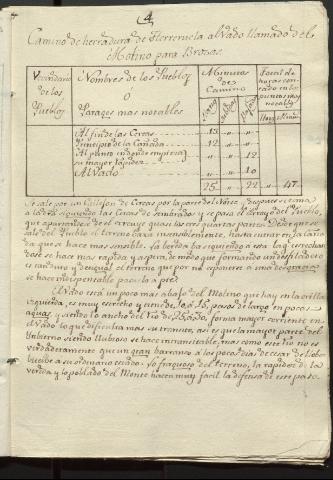 4
Camino de herradura de Herreruela al Vado llamado del
Molino para Brozas.
Vecindario de los Pueblos
Nombres de los Pueblos ó Parages mas notables
Minutos de Camino
Total de horas
Al fin de las Cercas 13 " "
Principio de la Cañada 12 " "
Al punto en donde empieza
su mayor rapidez " " 12
Al Vado " " 10
25 " 22 " 47
Se sale por un Callejon de Cercas por la parte del Norte, despues se toma
siguiendo las Cercas de sembrados y se pasa el arroyo del Pueblo,
sale del Pueblo el terreno baxa insensiblemente, hasta entrar en la caña
da que se hace mas sensible. La vereda ba siguiendo á esta la q. estrechan
dose se hace mas rapida y aspera, de modo que formando un desfiladero
el terreno que por no exponerse á una desgracia
se hace indispensable pasarlo á pie.
El Vado está un poco mas abajo del Molino que hay en la orilla
izquierda, es muy estrecho y tiene de 10 á 15 pasos de largo en pocas
aguas y siendo lo ancho del rio de 25 á 30, forma mayor corriente en
el Vado lo que dificulta mas su transito, asi es que la mayor parte del
Imbierno siendo llubioso se hace intransitable mas como este rio no es
verdaderamente que un gran barranco á los pocos dias de cesar de llober
buelbe á su ordinario estado. Lo fragoso del terreno, la rapidez de la
vereda y lo poblado del Monte hacen muy facil la defensa de este paso.